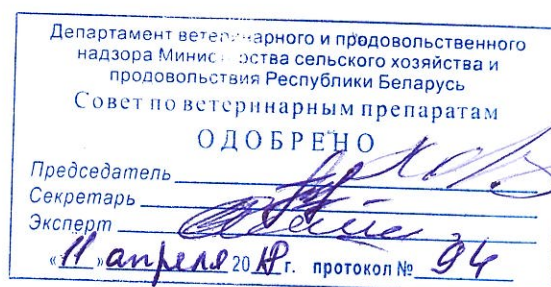 Департамент ветеринарного и продовольственного
надзора Министерства сельского хозяйства и
продовольствия Республики Беларусь
Совет по ветеринарным препаратам
ОДОБРЕНО
Председатель
Секретарь
Эксперт
«11» апреля 20 г. протокол № 94